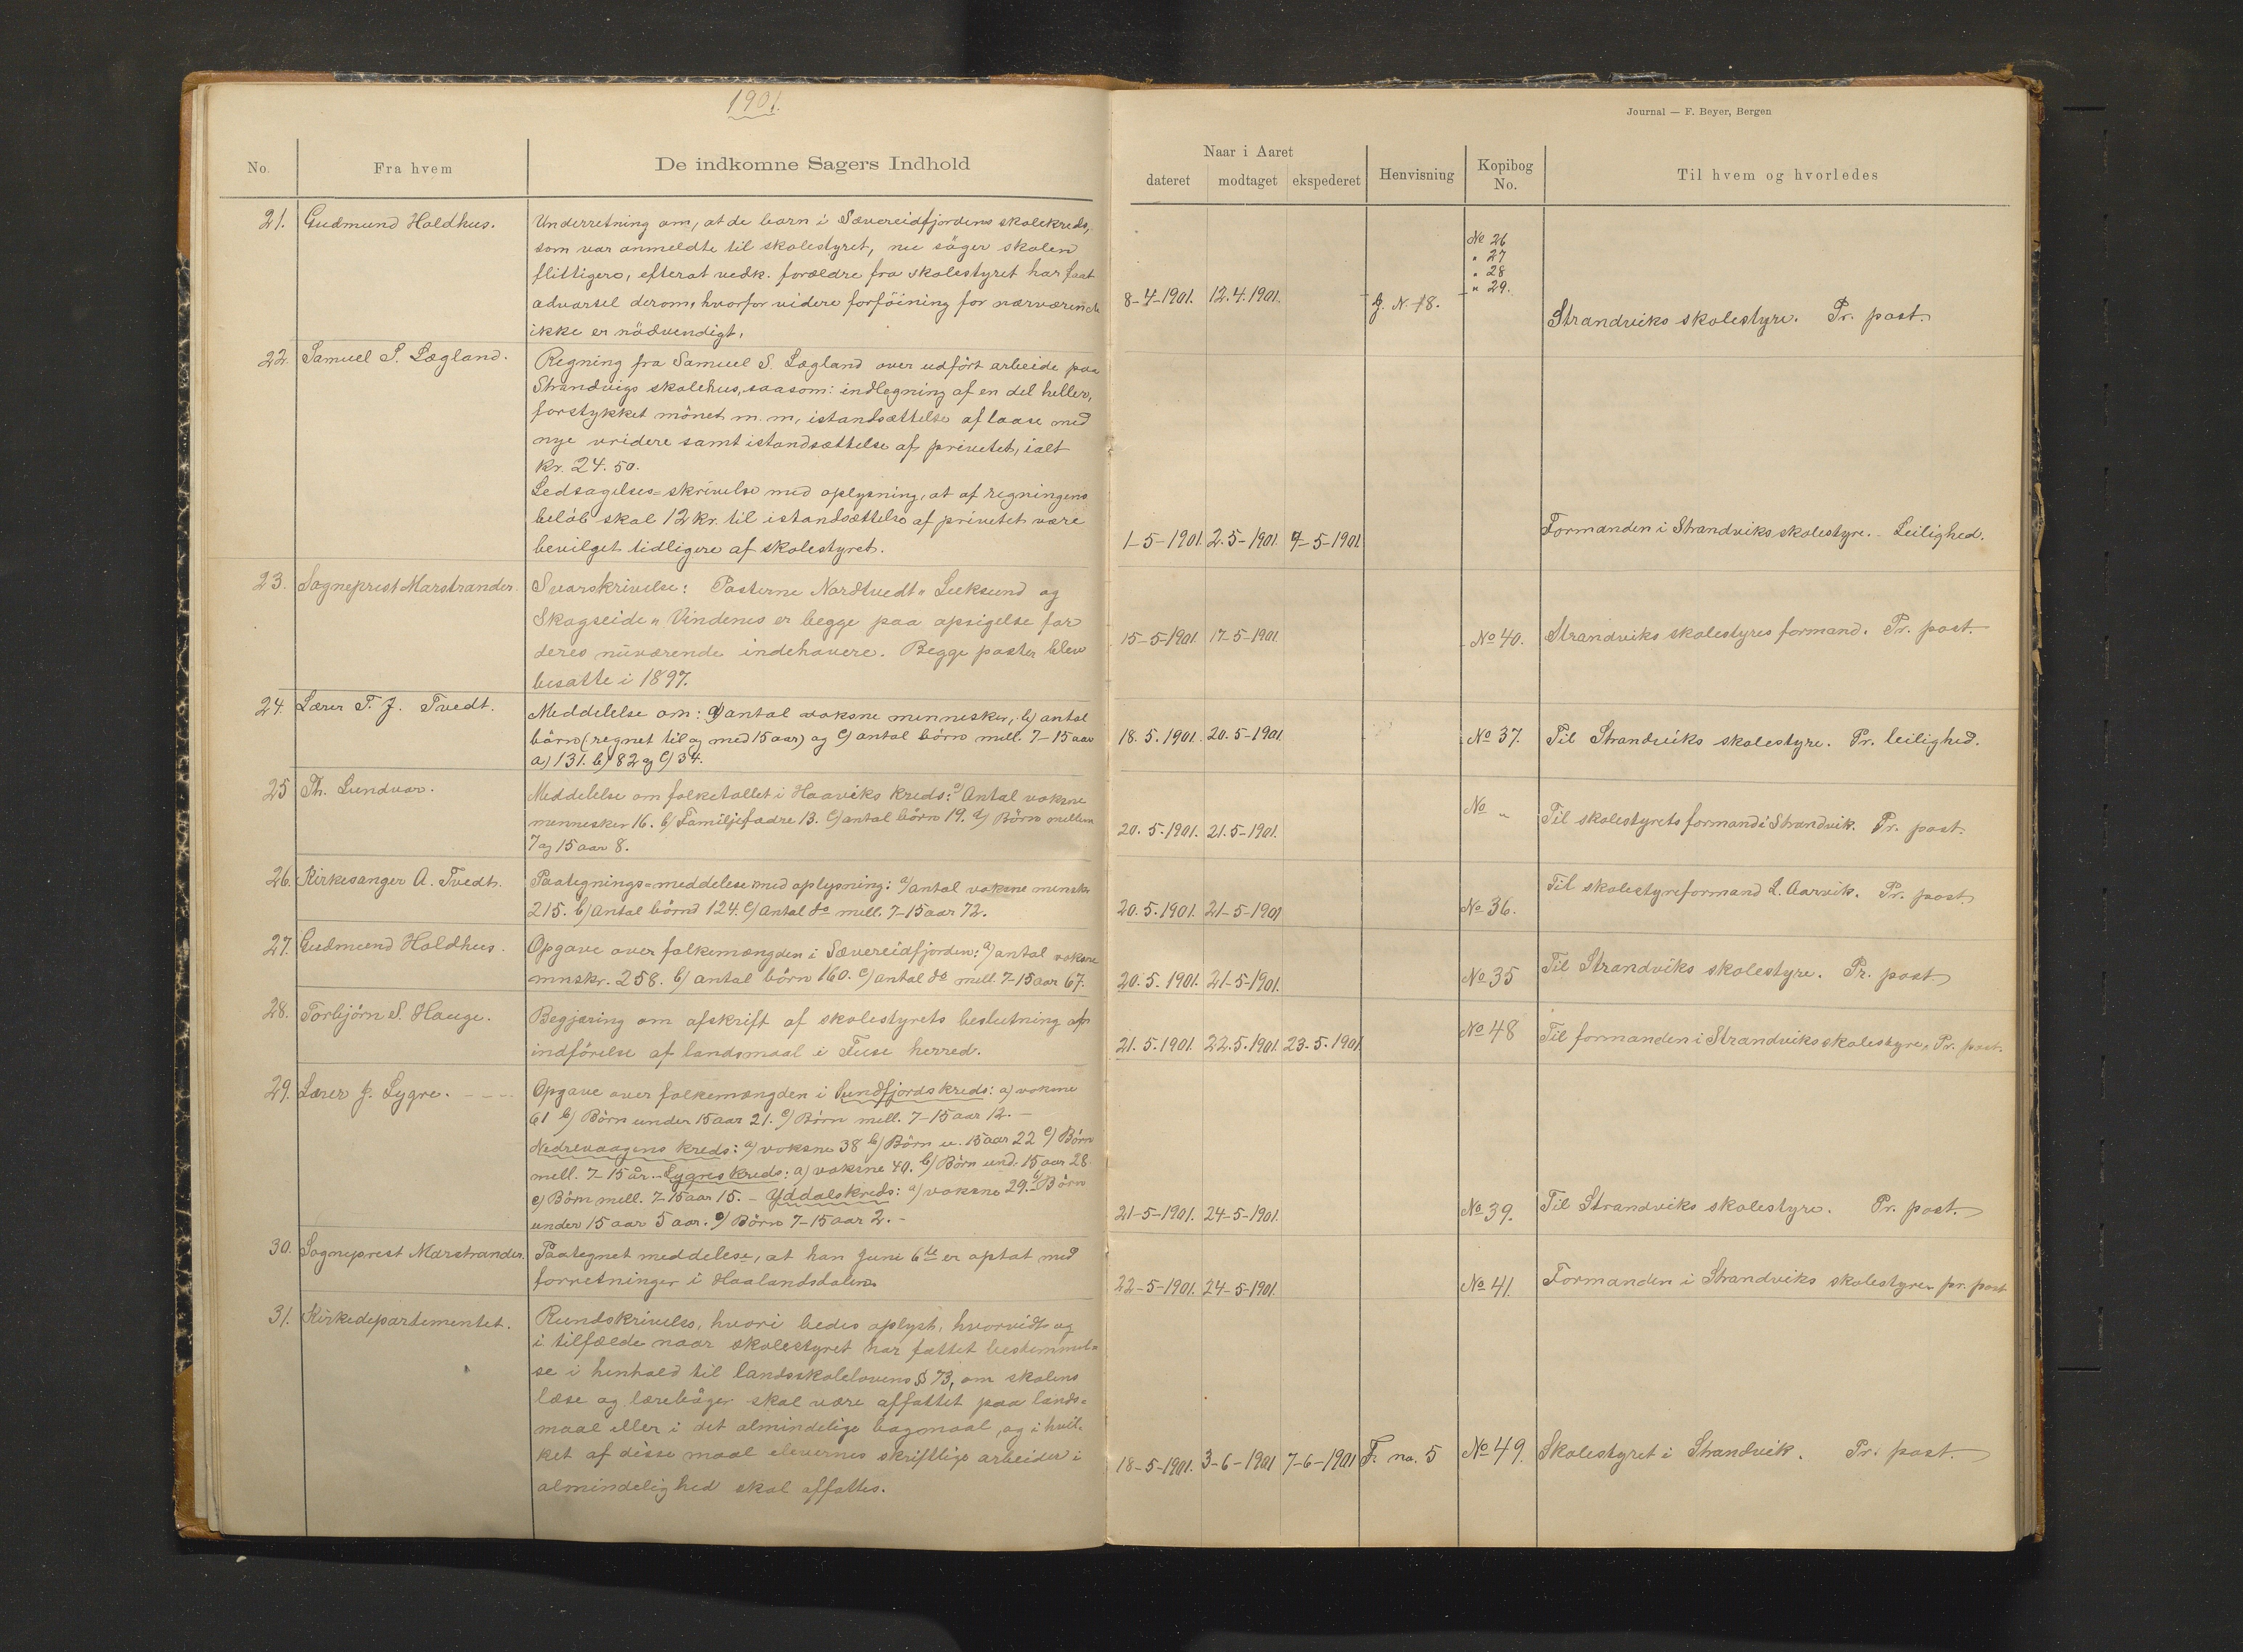 1901.
No.
Fra hvem
De indkomne Sagers Indhold
21. Gudmund Holdhus.
Underretning om, at de barn i Sævereidfjordens skolekreds,
som var anmeldte til skolestyret, nu söger skolen
flittigere, efterat vedk. forældre fra skolestyret har faat
advarsel derom, hvorfor videre forföining for nærværende
ikke er nödvendigt.
22. Samuel S. Lægland.
Regning fra Samuel S. Lægland over udfört arbeide paa
Strandvigs skolehus, saasom: indlegning af en del heller,
forstykket mönet m. m, istandsættelse af laase med
nye vridere samt istandsættelse af privetet, ialt
kr. 24.50.
Ledsagelses=skrivelse med oplysning, at af regningens
belöb skal 12 kr. til istandsættelse af privetet være
bevilget tidligere af skolestyret.
23. Sogneprest Marstrander.
Svarskrivelse: Posterne Nordtvedt " Leeksund og
Skogseide " Vindenes er begge paa opsigelse for
deres nuværende indehavere. Begge poster blev
besatte i 1897.
24. Lærer T. J. Tvedt.
Meddelelse om: a) antal voksne mennesker, b) antal
börn (regnet til og med 15 aar) og c) antal börn mell. 7-15 aar
a) 131. b) 82 og c) 34.
25 Th. Lundvar.
Meddelelse om folketallet i Haaviks kreds: a) Antal voksne
mennesker 16. b) Familjefædre 13. c) antal börn 19. d) Börn mellem
7 og 15 aar 8.
26. Kirkesanger A. Tvedt.
Paategnings=meddelese med oplysning: a) antal voksne menskr
215. b) Antal börn 124. c) Antal do mell. 7-15 aar 72.
27. Gudmund Holdhus.
Opgave over folkemængden i Sævereidfjorden: a) antal voksne
mnskr. 258. b) antal börn 160. c) antal do mell. 7-15 aar 67.
28. Torbjörn S. Hauge.
Begjæring om afskrift af skolestyrets beslutning ap
indförelse af landsmaal i Fuse herred.
29. Lærer J. Lygre. - - - -
Opgave over folkemængden i Sundfjords kreds: a) voksne
61 b) Börn under 15 aar 21. c) Börn mell. 7-15 aar 12. -
Nedrevaagens kreds: a) voksne 38 b) Börn u. 15 aar 22 c) Börn
mell. 7-15 år. - Lygres kreds: a) voksne 40. b) Börn und. 15 aar 28.
c) Börn mell. 7-15 aar 15. - Yddalskreds: a) voksne 29. b) Börn
under 15 aar 5 aar. c) Börn 7-15 aar 2. -
30. Sogneprest Marstrander.
Paategnet meddelese, at han Juni 6te er optat med
forretninger i Haalandsdalen.
31. Kirkedepartementet.
Rundskrivelse, hvori bedes oplyst, hvorvidt og
i tilfælde naar skolestyret har fattet bestemmel=
se i henhold til landsskolelovens § 73, om skolens
læse og læreböger skal være affattet paa lands=
maal eller i det almindelige bogmaal, og i hvil=
ket af disse maal elevernes skriftlige arbeider i
almindelighed skal affattes.
Journal — F. Beyer, Bergen
Naar i Aaret
dateret modtaget ekspederet
Henvisning
Kopibog
No.
Til hvem og hvorledes
No 26
" 27
" 28
" 29.
8-4-1901. 12.4.1901. J. N. 18. Strandviks skolestyre. Pr. post.
1-5-1901. 2.5-1901. 7-5-1901. Formanden i Strandviks skolestyre. - Leilighed.
15-5-1901. 17-5-1901. No 40. Strandviks skolestyres formand. Pr. post.
18.5.1901. 20.5-1901. No 37. Til Strandviks skolestyre. Pr. leilighed.
20.5.1901. 21.5-1901. No " Til skolestyrets formand i Strandvik. Pr. post.
20.5.1901. 21-5-1901 No 36. Til skolestyreformand L. Aarvik. Pr. post.
20.5.1901. 21-5-1901. No 35 Til Strandviks skolestyre. Pr. post.
21.5.1901. 22.5.1901. 23.5.1901. No 48 Til formanden i Strandviks skolestyre. Pr. post.
21-5-1901. 24-5-1901. No 39. Til Strandviks skolestyre. Pr. post.
22-5-1901. 24-5-1901. No 41. Formanden i Strandviks skolestyre. pr. post
18-5-1901. 3-6-1901 7-6-1901 F. no. 5 No 49. Skolestyret i Strandvik. Pr. post.